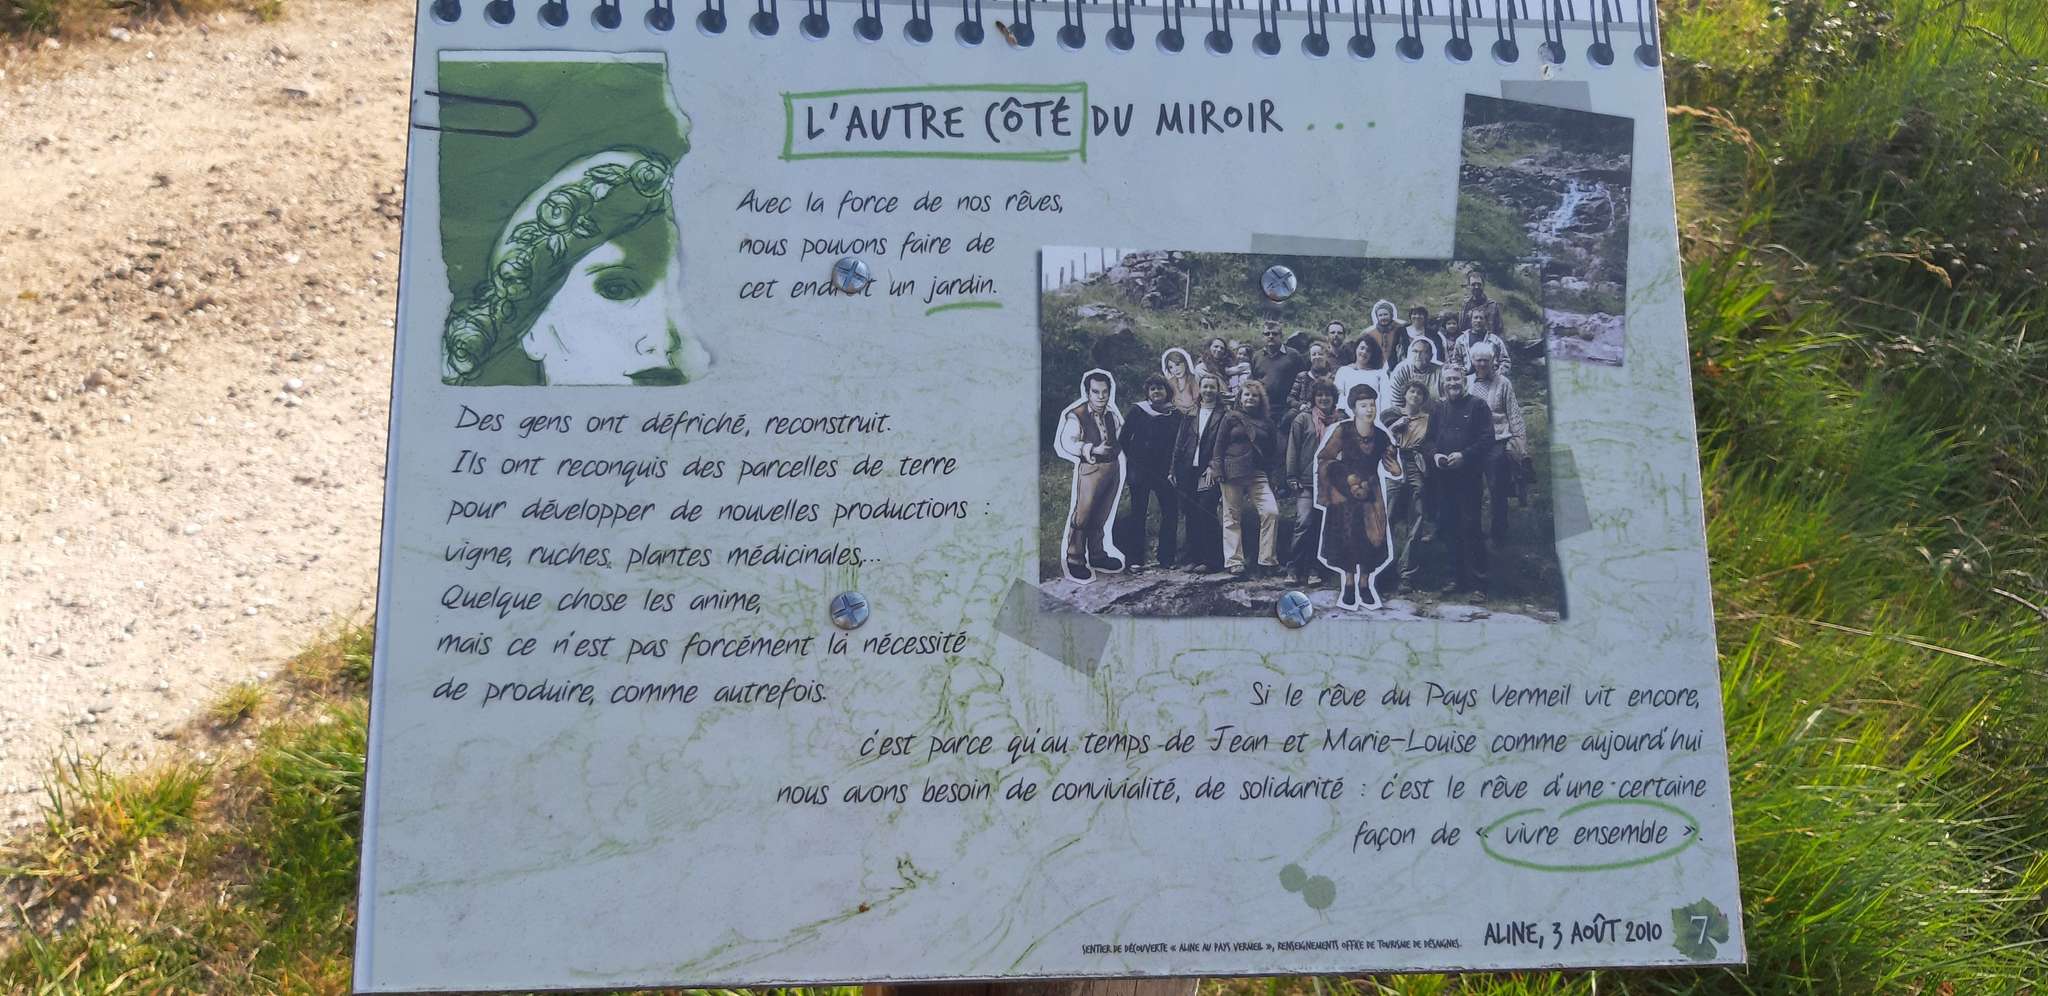 L'AUTRE CÔTÉ DU MIROIR ...
Avec la force de nos rêves,
nous pouvons faire de
cet endroit un jardin.
Des gens ont défriché, reconstruit.
Ils ont reconquis des parcelles de terre
pour développer de nouvelles productions :
vigne, ruches, plantes médicinales,...
Quelque chose les anime,
mais ce n'est pas forcément la nécessité
de produire, comme autrefois.
Si le rêve du Pays Vermeil vit encore,
c'est parce qu'au temps de Jean et Marie-Louise comme aujourd'hui
nous avons besoin de convivialité, de solidarité : c'est le rêve d'une certaine
façon de « vivre ensemble ».
ALINE, 3 AOÛT 2010 7
SENTIER DE DÉCOUVERTE « ALINE AU PAYS VERMEIL », RENSEIGNEMENTS OFFICE DE TOURISME DE DÉSAIGNES.